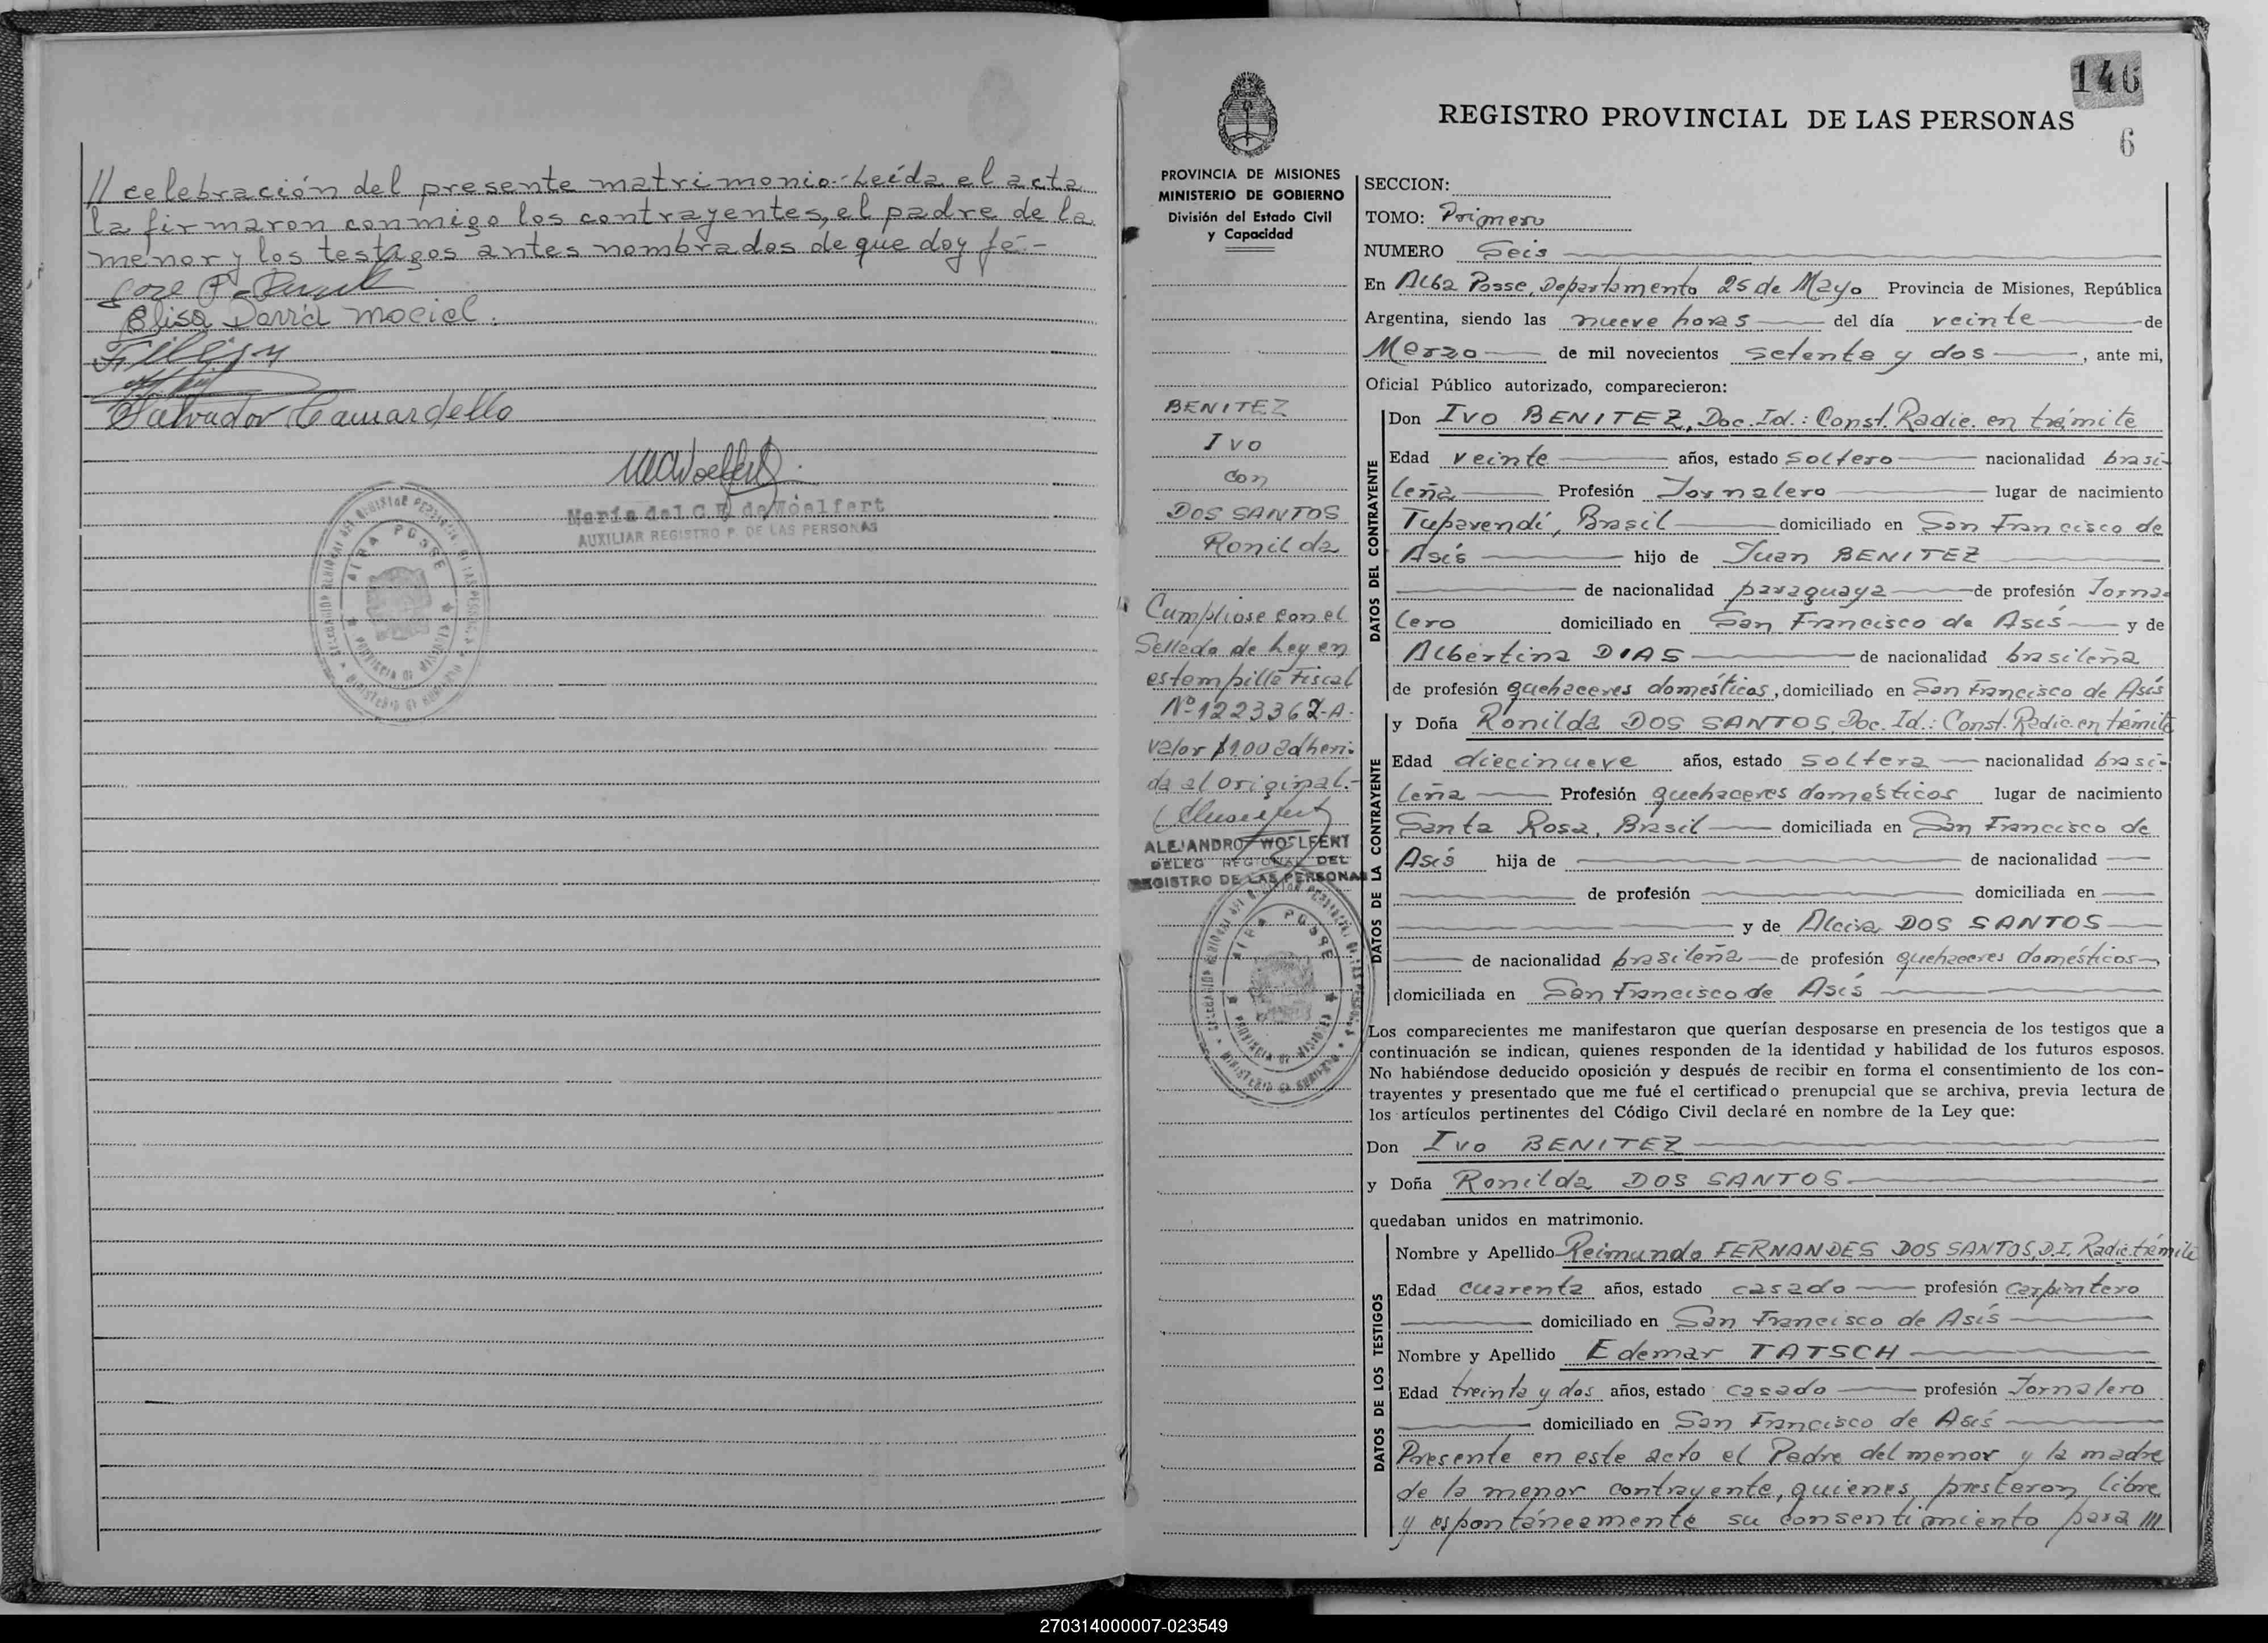 // celebración del presente matrimonio.-Leída el acta
la firmaron conmigo los contrayentes, el padre de la
menor y los testigos antes nombrados de que doy fé.-
Elisa Darrá Maciel.
Salvador Camardello
María del C. F. de Woelfert
AUXILIAR REGISTRO P. DE LAS PERSONAS
146
6
REGISTRO PROVINCIAL DE LAS PERSONAS
PROVINCIA DE MISIONES
MINISTERIO DE GOBIERNO
División del Estado Civil
y Capacidad
BENITEZ
Ivo
con
DOS SANTOS
Ronilda
Cumpliose con el
Sellado de Ley en
estampilla Fiscal
Nº 1223362-A.
valor $1.00 adheri-
da al original.-
ALEJANDRO WOELFERT
DELEG REGIONAL DEL
REGISTRO DE LAS PERSONAS
SECCION:
TOMO: Primero
NUMERO Seis
En Alba Posse, Departamento 25 de Mayo Provincia de Misiones, República
Argentina, siendo las nueve horas del día veinte de
Marzo de mil novecientos setenta y dos, ante mi,
Oficial Público autorizado, comparecieron:
DATOS DEL CONTRAYENTE
Don Ivo BENITEZ, Doc. Id.: Const. Radic. en trámite
Edad veinte años, estado soltero nacionalidad brasi-
leña Profesión Jornalero lugar de nacimiento
Tuparendí, Brasil domiciliado en San Francisco de
Asís hijo de Juan BENITEZ
de nacionalidad paraguaya de profesión Jorna-
lero domiciliado en San Francisco de Asís y de
Albertina DIAS de nacionalidad brasileña
de profesión quehaceres domésticos, domiciliado en San Francisco de Asís
DATOS DE LA CONTRAYENTE
y Doña Ronilda DOS SANTOS, Doc. Id.: Const. Radic. en trámite
Edad diecinueve años, estado soltera nacionalidad brasi-
leña Profesión quehaceres domésticos lugar de nacimiento
Santa Rosa, Brasil domiciliada en San Francisco de
Asís hija de de nacionalidad
de profesión domiciliada en
y de Alcira DOS SANTOS
de nacionalidad brasileña de profesión quehaceres domésticos
domiciliada en San Francisco de Asís
Los comparecientes me manifestaron que querían desposarse en presencia de los testigos que a
continuación se indican, quienes responden de la identidad y habilidad de los futuros esposos.
No habiéndose deducido oposición y después de recibir en forma el consentimiento de los con-
trayentes y presentado que me fué el certificado prenupcial que se archiva, previa lectura de
los artículos pertinentes del Código Civil declaré en nombre de la Ley que:
Don Ivo BENITEZ
y Doña Ronilda DOS SANTOS
quedaban unidos en matrimonio.
DATOS DE LOS TESTIGOS
Nombre y Apellido Reimundo FERNANDES DOS SANTOS, D.I. Radic. trámite
Edad cuarenta años, estado casado profesión Carpintero
domiciliado en San Francisco de Asís
Nombre y Apellido Edemar TATSCH
Edad treinta y dos años, estado casado profesión Jornalero
domiciliado en San Francisco de Asís
Presente en este acto el Padre del menor y la madre
de la menor contrayente, quienes prestaron libre
y espontáneamente su consentimiento para ///
270314000007-023549